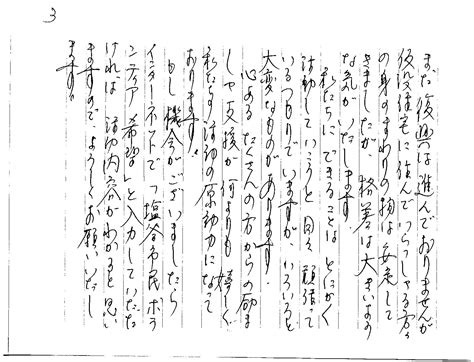 3
まだ復興は進んでおりませんが
仮設住宅に住んでいらっしゃる方々
の身のまわりの物は安定して
きましたが、格差は大きいよう
な気がいたします
私たちにできることは とにかく
活動していこうと 日々 頑張って
いるつもりでいますが、いろいろと
大変なものがあります。
心あるたくさんの方からの励ま
しや支援が何よりも嬉しく
私たちの活動の原動力になって
おります。
もし機会がございましたら
インターネットで「塩釜市民ボラ
ンティア 希望」と入力していただ
ければ 活動内容がわかると思い
ますので、よろしくお願いいたし
ます。